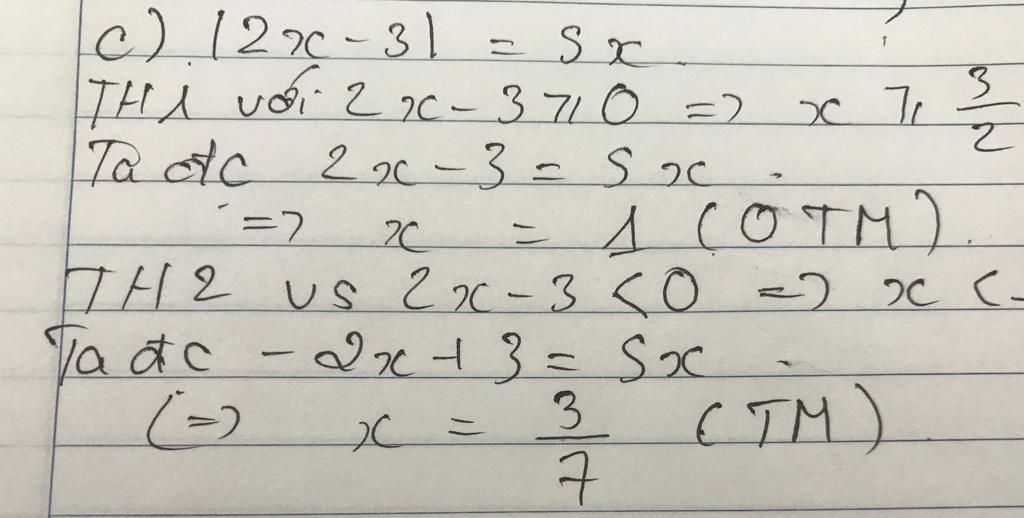 c) |2x - 3| = 5x
TH1 với 2x - 3 ≥ 0 => x ≥ 3/2
Ta đc 2x - 3 = 5x
=> x = 1 (0 TM).
TH2 vs 2x - 3 < 0 => x <
Ta đc - 2x + 3 = 5x
(=> x = 3/7 (TM)